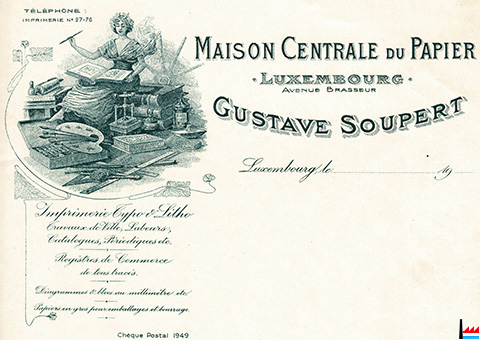 TÉLÉPHONE:
IMPRIMERIE No 27-76
MAISON CENTRALE DU PAPIER
LUXEMBOURG
AVENUE BRASSEUR
GUSTAVE SOUPERT
Luxembourg, le 19
Imprimerie Typo & Litho
Travaux de Ville, Labeurs,
Catalogues, Périodiques etc.
Registres de Commerce
de tous tracés.
Diagrammes & blocs au millimètre etc.
Papiers en gros pour emballages et bourrage.
Chèque Postal 1949